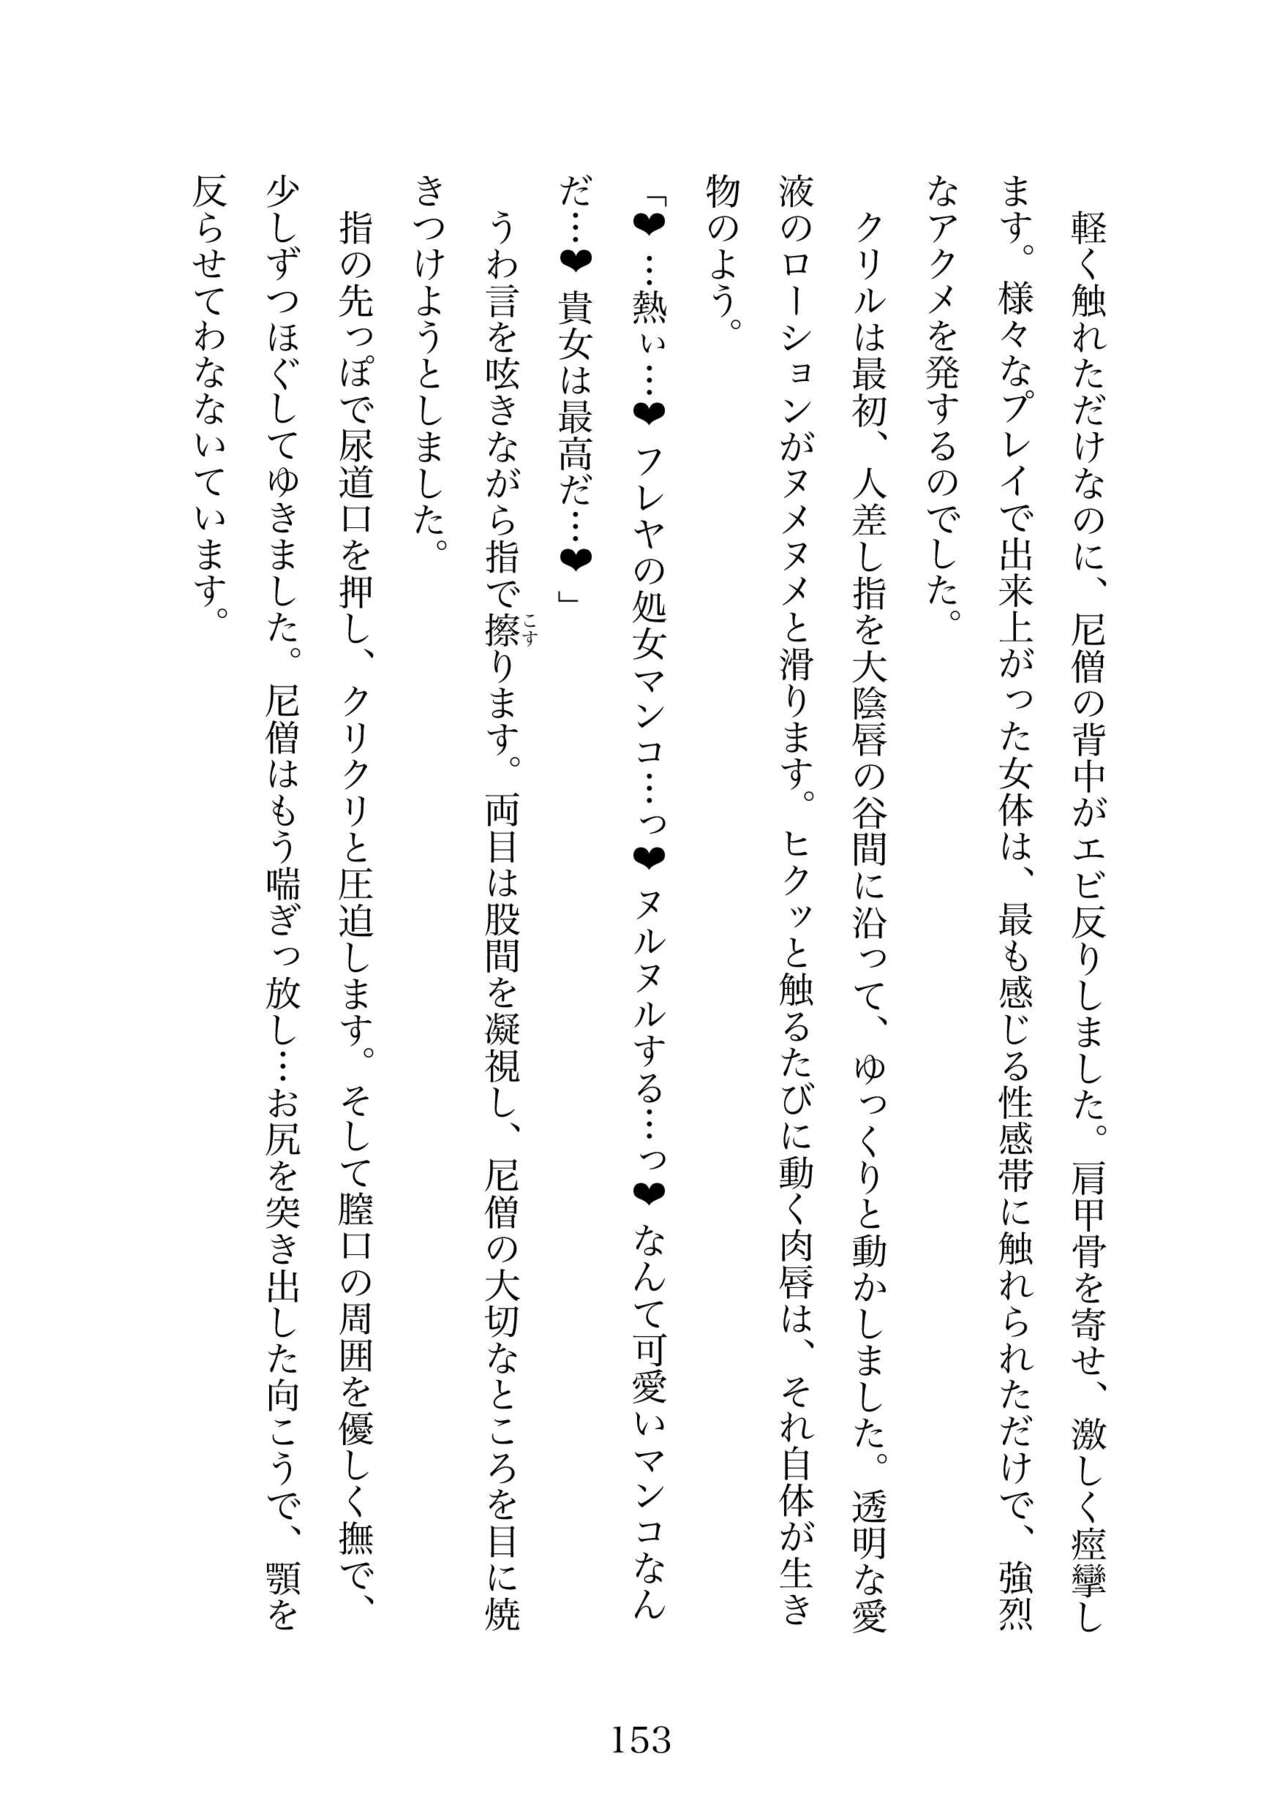 軽く触れただけなのに、尼僧の背中がエビ反りしました。肩甲骨を寄せ、激しく痙攣し
ます。様々なプレイで出来上がった女体は、最も感じる性感帯に触れられただけで、強烈
なアクメを発するのでした。
クリルは最初、人差し指を大陰唇の谷間に沿って、ゆっくりと動かしました。透明な愛
液のローションがヌメヌメと滑ります。ヒクッと触るたびに動く肉唇は、それ自体が生き
物のよう。
「❤…熱ぃ…❤フレヤの処女マンコ…っ❤ヌルヌルする…っ❤なんて可愛いマンコなん
だ…❤貴女は最高だ…❤」
うわ言を呟きながら指で擦ります。両目は股間を凝視し、尼僧の大切なところを目に焼
こす
きつけようとしました。
指の先っぽで尿道口を押し、クリクリと圧迫します。そして膣口の周囲を優しく撫で、
少しずつほぐしてゆきました。尼僧はもう喘ぎっ放し…お尻を突き出した向こうで、顎を
反らせてわなないています。
153